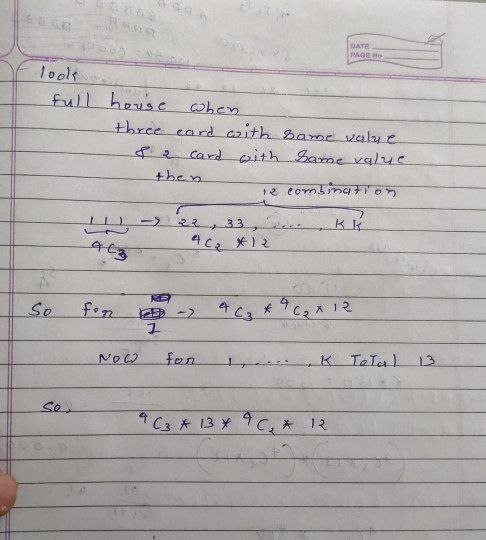 DATE
PAGE No
look
full house when
three card with same value
& 2 card with same value
then
12 combination
1 1 1 -> 22 , 33 , ...., KK
4C3 4C2 * 12
So for 1 -> 4C3 * 4C2 * 12
Now for 1, ...., K Total 13
So,
4C3 * 13 * 4C2 * 12